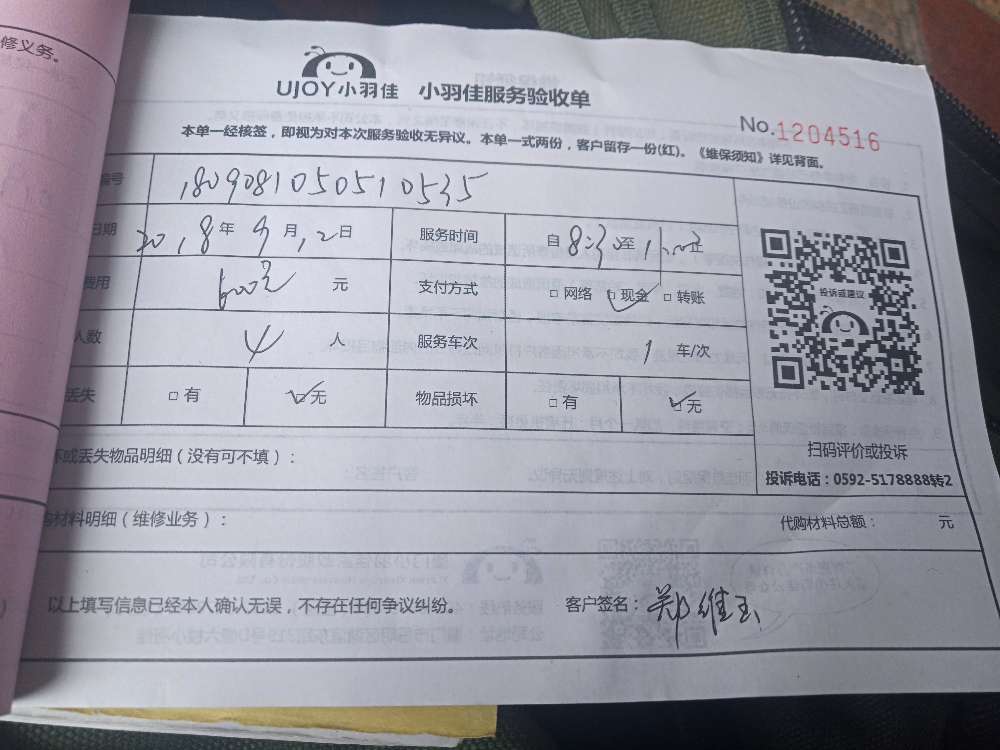 修义务。
UJOY小羽佳 小羽佳服务验收单
No.1204516
本单一经核签，即视为对本次服务验收无异议。本单一式两份，客户留存一份(红)。《维保须知》详见背面。
编号 1809081050510535
日期 2018年9月12日 服务时间 自8:30至11:00止
费用 600元 元 支付方式 □网络 □现金 □转账
人数 4人 服务车次 1车/次
丢失 □有 □无 物品损坏 □有 □无
投诉或建议
扫码评价或投诉
投诉电话：0592-5178888转2
坏或丢失物品明细（没有可不填）：
购材料明细（维修业务）： 代购材料总额： 元
以上填写信息已经本人确认无误，不存在任何争议纠纷。 客户签名：郑维玉